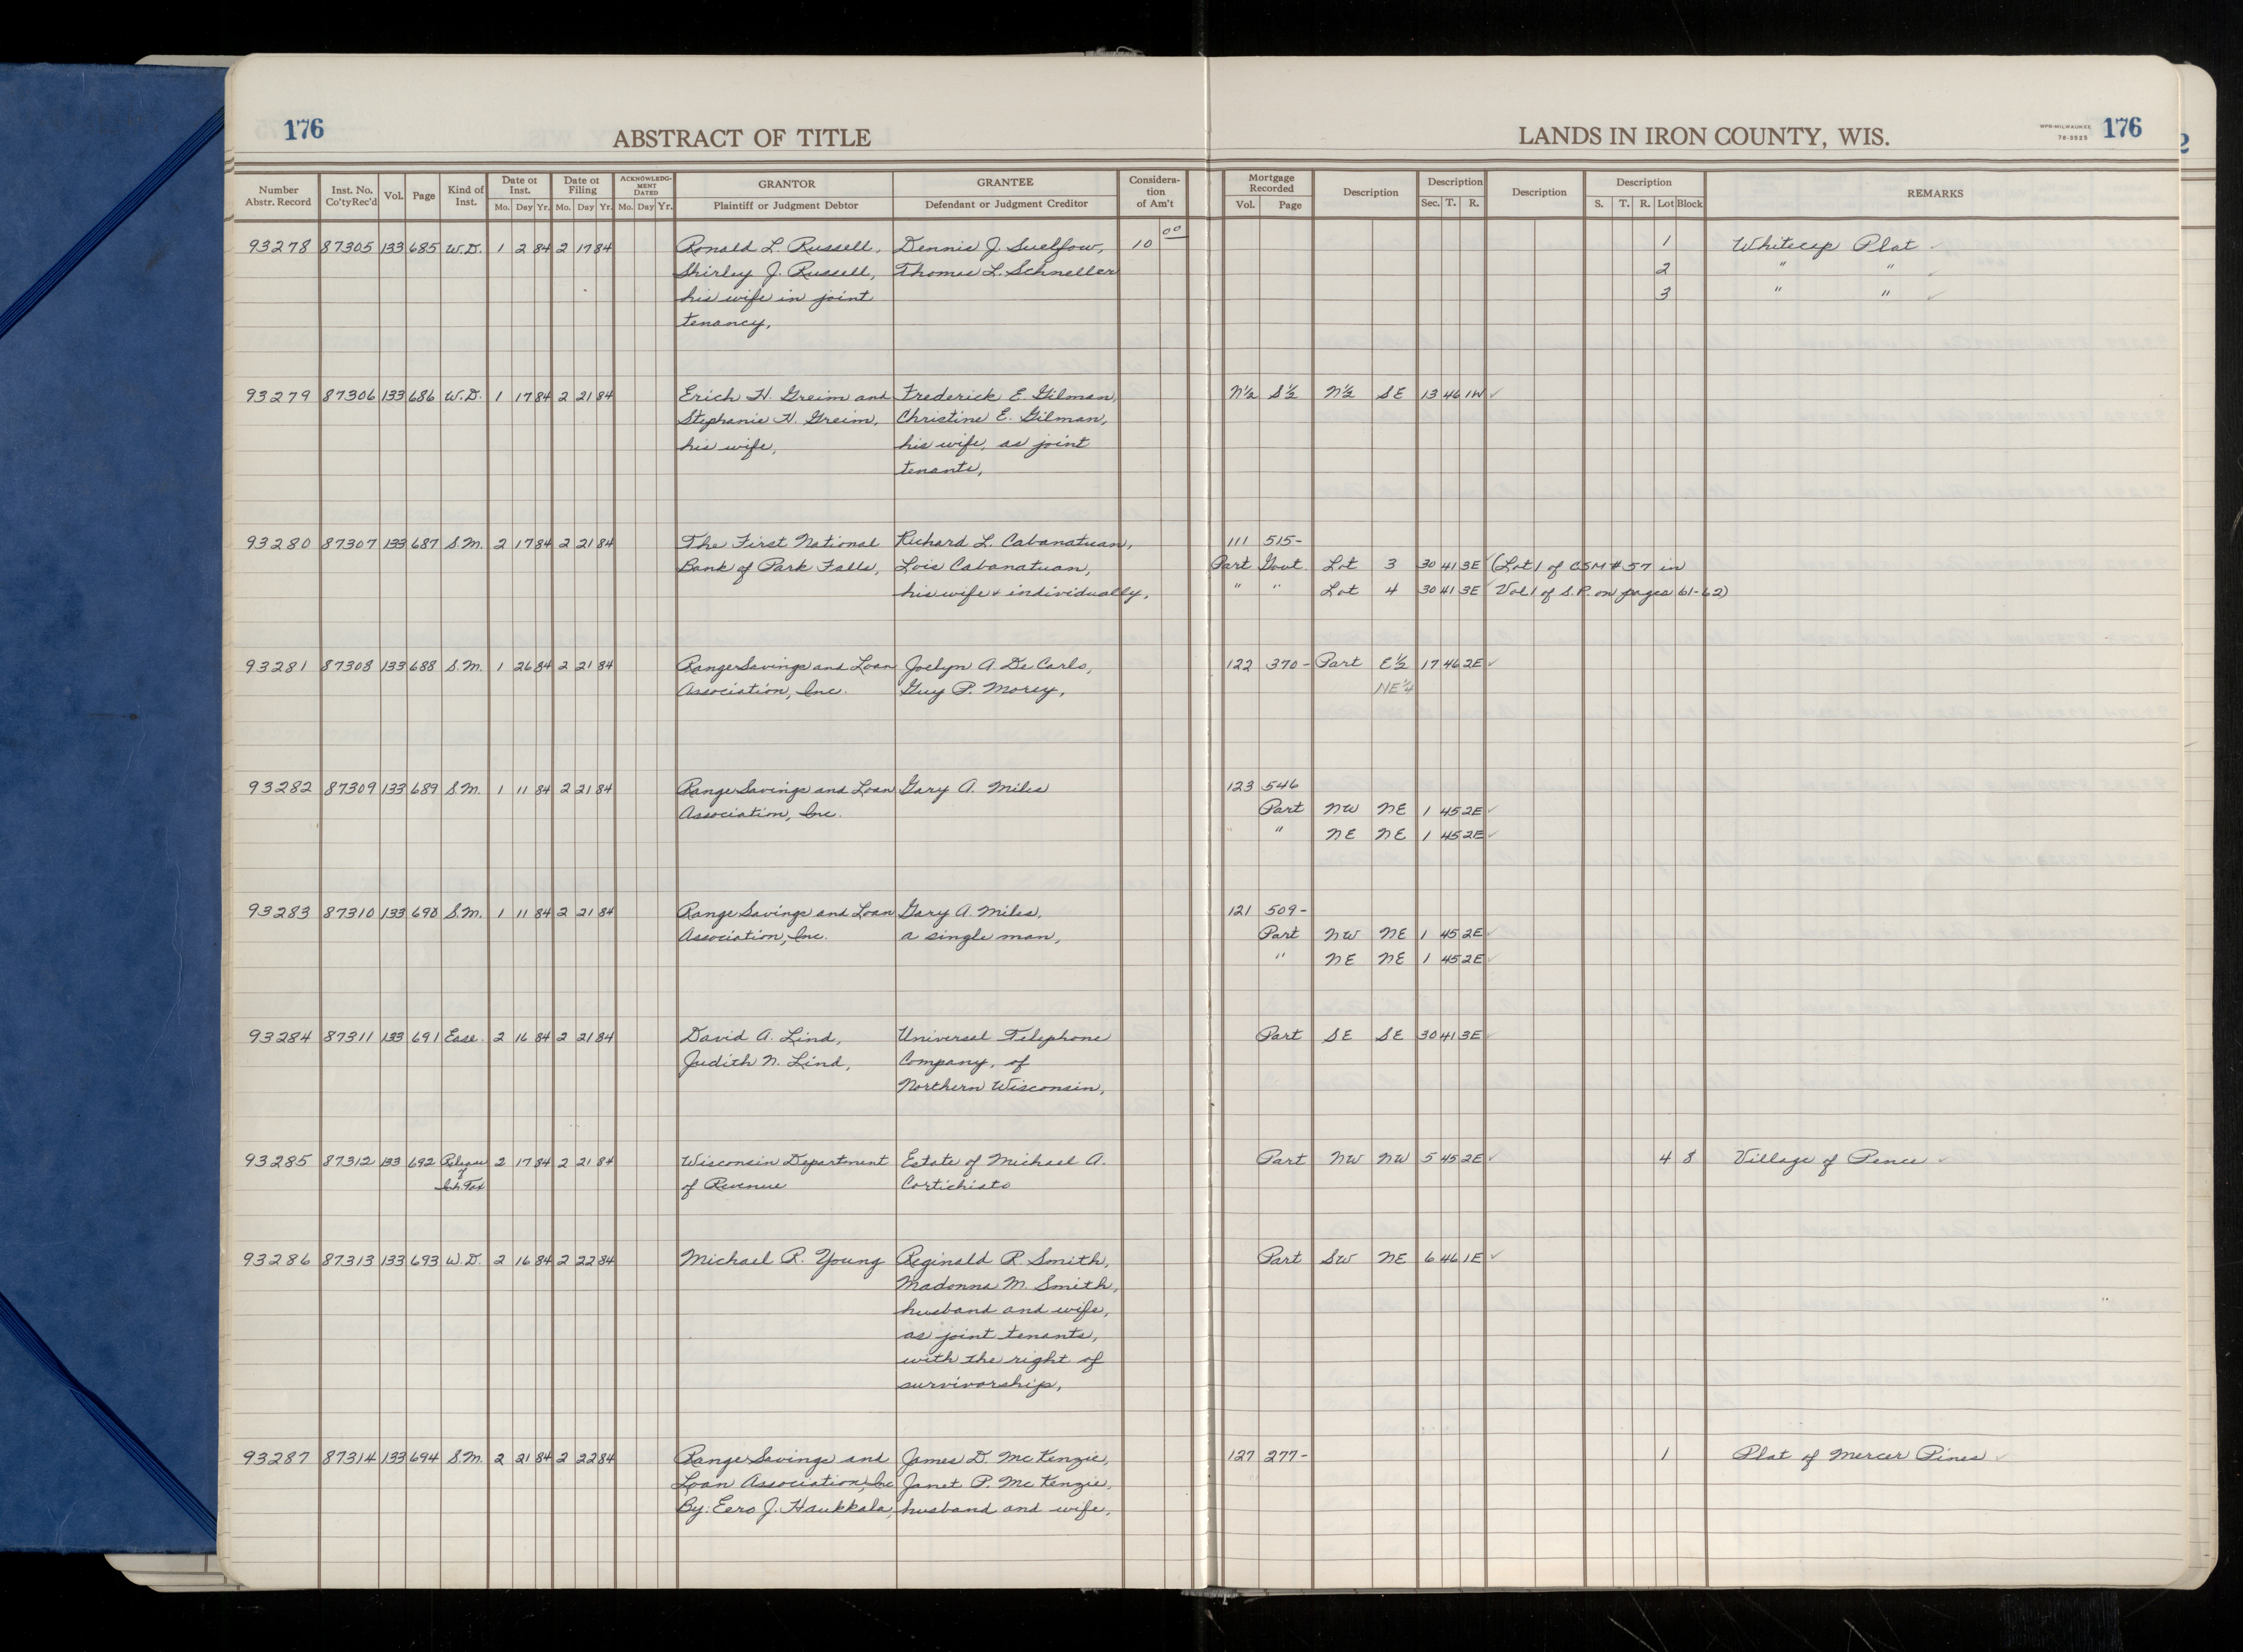 176 ABSTRACT OF TITLE LANDS IN IRON COUNTY, WIS. WPR-MILWAUKEE 78-3525 176
Number Abstr. Record Inst. No. Co'ty Rec'd Vol. Page Kind of Inst. Date of Inst. Mo. Day Yr. Date of Filing Mo. Day Yr. ACKNOWLEDGMENT DATED Mo. Day Yr. GRANTOR Plaintiff or Judgment Debtor GRANTEE Defendant or Judgment Creditor Consideration of Am't Mortgage Recorded Vol. Page Description Description Sec. T. R. Description Description S. T. R. Lot Block REMARKS
93278 87305 133 685 W.D. 1 2 84 2 17 84 Ronald L. Russell, Dennis J. Suelfow, 10 00 1 Whitecap Plat
Shirley J. Russell, Thomas L. Schneller 2 " "
his wife in joint 3 " "
tenancy,
93279 87306 133 686 W.D. 1 17 84 2 21 84 Erich H. Greim and Frederick E. Gilman, N½ S½ N½ SE 13 46 1W
Stephanie H. Greim, Christine E. Gilman,
his wife, his wife, as joint
tenants,
93280 87307 133 687 S.M. 2 17 84 2 21 84 The First National Richard L. Cabanatuan, 111 515-
Bank of Park Falls, Lois Cabanatuan, Part Govt. Lot 3 30 41 3E (Lot 1 of CSM # 57 in
his wife & individually, " " Lot 4 30 41 3E Vol 1 of S.P. on pages 61-62)
93281 87308 133 688 S.M. 1 26 84 2 21 84 Range Savings and Loan Joelyn A De Carlo, 122 370- Part E½ 17 46 2E
Association, Inc. Guy P. Morey, NE¼
93282 87309 133 689 S.M. 1 11 84 2 21 84 Range Savings and Loan Gary A. Miles 123 546
Association, Inc. Part NW NE 1 45 2E
" NE NE 1 45 2E
93283 87310 133 690 S.M. 1 11 84 2 21 84 Range Savings and Loan Gary A. Miles, 121 509-
Association, Inc. a single man, Part NW NE 1 45 2E
" NE NE 1 45 2E
93284 87311 133 691 Ease. 2 16 84 2 21 84 David A. Lind, Universal Telephone Part SE SE 30 41 3E
Judith N. Lind, Company, of
Northern Wisconsin,
93285 87312 133 692 of 2 17 84 2 21 84 Wisconsin Department Estate of Michael A. Part NW NW 5 45 2E 4 8 Village of Pence
Inh Tax of Revenue Cortichiato
93286 87313 133 693 W.D. 2 16 84 2 22 84 Michael R. Young Reginald R. Smith, Part SW NE 6 46 1E
Madonna M. Smith,
husband and wife,
as joint tenants,
with the right of
survivorship,
93287 87314 133 694 S.M. 2 21 84 2 22 84 Range Savings and James D. McKenzie, 127 277- 1 Plat of Mercer Pines
Loan Association, Inc Janet P. McKenzie,
By: Eero J. Haukkala, husband and wife,